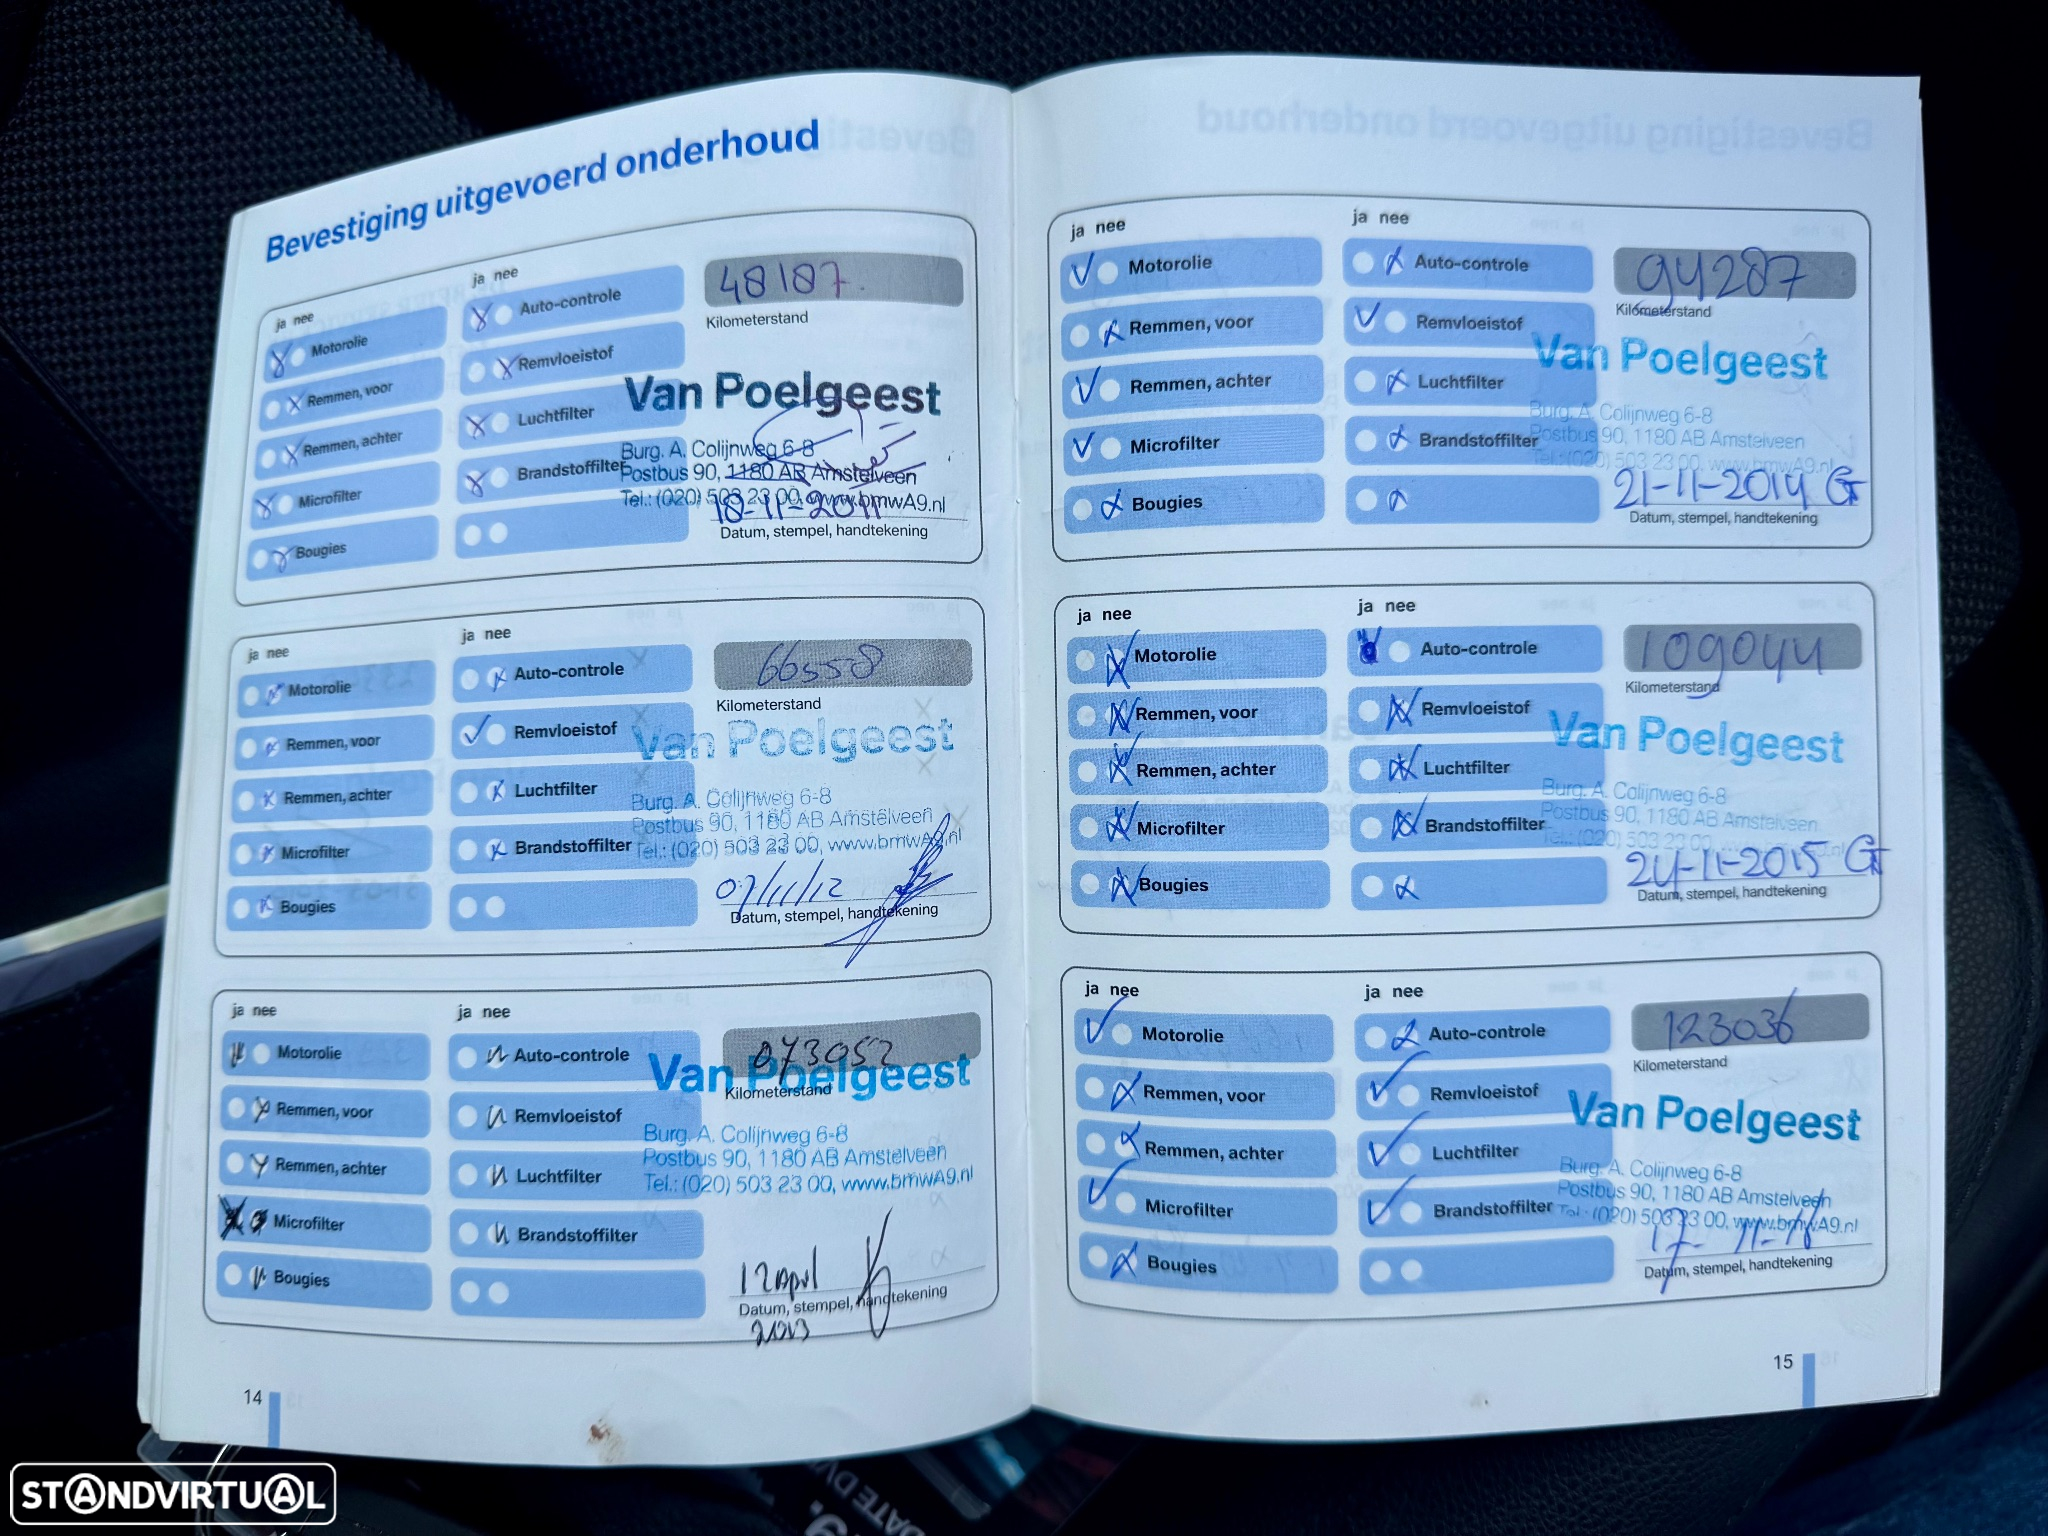 Bevestiging uitgevoerd onderhoud
ja nee
Motorolie
Remmen, voor
Remmen, achter
Microfilter
Bougies
ja nee
Auto-controle
Remvloeistof
Luchtfilter
Brandstoffilter
48187
Kilometerstand
Van Poelgeest
Burg. A. Colijnweg 6-8
Postbus 90, 1180 AB Amstelveen
Tel.: (020) 503 23 00, www.bmwA9.nl
18-11-2011
Datum, stempel, handtekening
ja nee
Motorolie
Remmen, voor
Remmen, achter
Microfilter
Bougies
ja nee
Auto-controle
Remvloeistof
Luchtfilter
Brandstoffilter
66558
Kilometerstand
Van Poelgeest
Burg. A. Colijnweg 6-8
Postbus 90, 1180 AB Amstelveen
Tel.: (020) 503 23 00, www.bmwA9.nl
07/11/12
Datum, stempel, handtekening
ja nee
Motorolie
Remmen, voor
Remmen, achter
Microfilter
Bougies
ja nee
Auto-controle
Remvloeistof
Luchtfilter
Brandstoffilter
073052
Kilometerstand
Van Poelgeest
Burg. A. Colijnweg 6-8
Postbus 90, 1180 AB Amstelveen
Tel.: (020) 503 23 00, www.bmwA9.nl
12 April
Datum, stempel, handtekening
2013
14
ja nee
Motorolie
Remmen, voor
Remmen, achter
Microfilter
Bougies
ja nee
Auto-controle
Remvloeistof
Luchtfilter
Brandstoffilter
94287
Kilometerstand
Van Poelgeest
Burg. A. Colijnweg 6-8
Postbus 90, 1180 AB Amstelveen
Tel.: (020) 503 23 00, www.bmwA9.nl
21-11-2014 G
Datum, stempel, handtekening
ja nee
Motorolie
Remmen, voor
Remmen, achter
Microfilter
Bougies
ja nee
Auto-controle
Remvloeistof
Luchtfilter
Brandstoffilter
109044
Kilometerstand
Van Poelgeest
Burg. A. Colijnweg 6-8
Postbus 90, 1180 AB Amstelveen
Tel.: (020) 503 23 00,
24-11-2015 G
Datum, stempel, handtekening
ja nee
Motorolie
Remmen, voor
Remmen, achter
Microfilter
Bougies
ja nee
Auto-controle
Remvloeistof
Luchtfilter
Brandstoffilter
123036
Kilometerstand
Van Poelgeest
Burg. A. Colijnweg 6-8
Postbus 90, 1180 AB Amstelveen
Tel.: (020) 503 23 00, www.bmwA9.nl
17-11-
Datum, stempel, handtekening
15
STANDVIRTUAL